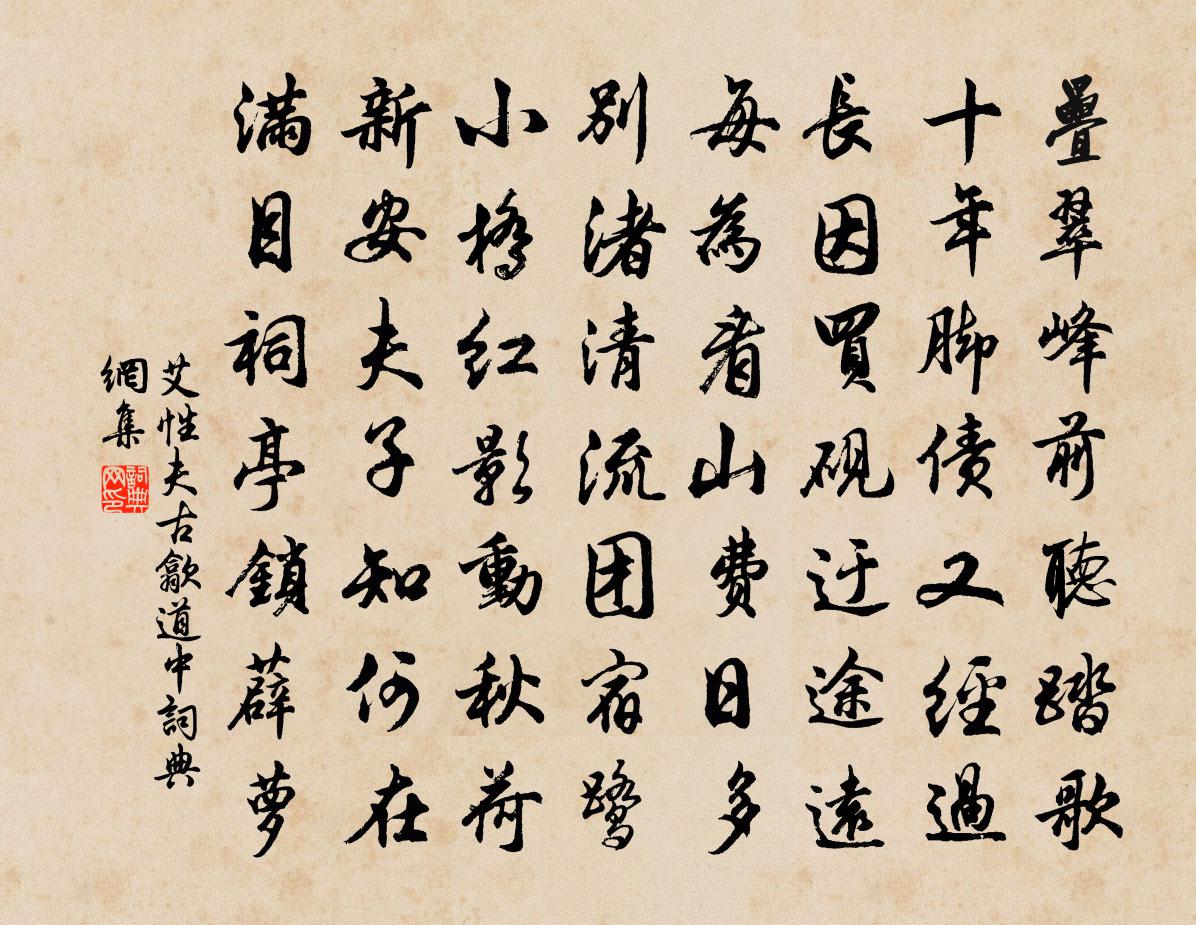 疊翠峰前聽踏歌
十年脚債又經過
長因買硯迂途遠
每為看山費日多
別渚清流团宿鷺
小橋紅影動秋荷
新安夫子知何在
滿目祠亭鎖薜萝
艾性夫古歙道中詞典
網集
詞典
网印